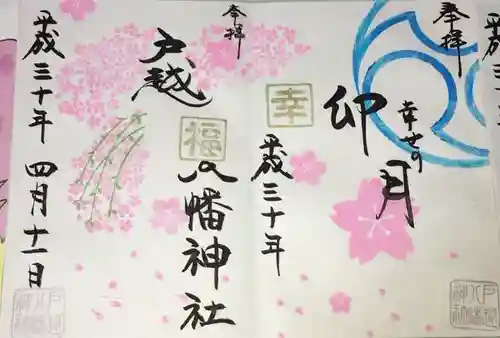 奉拝
平成
幸せの
卯月
幸
平成三十年
奉拝
戸越
福
八幡神社
平成三十年 四月十一日